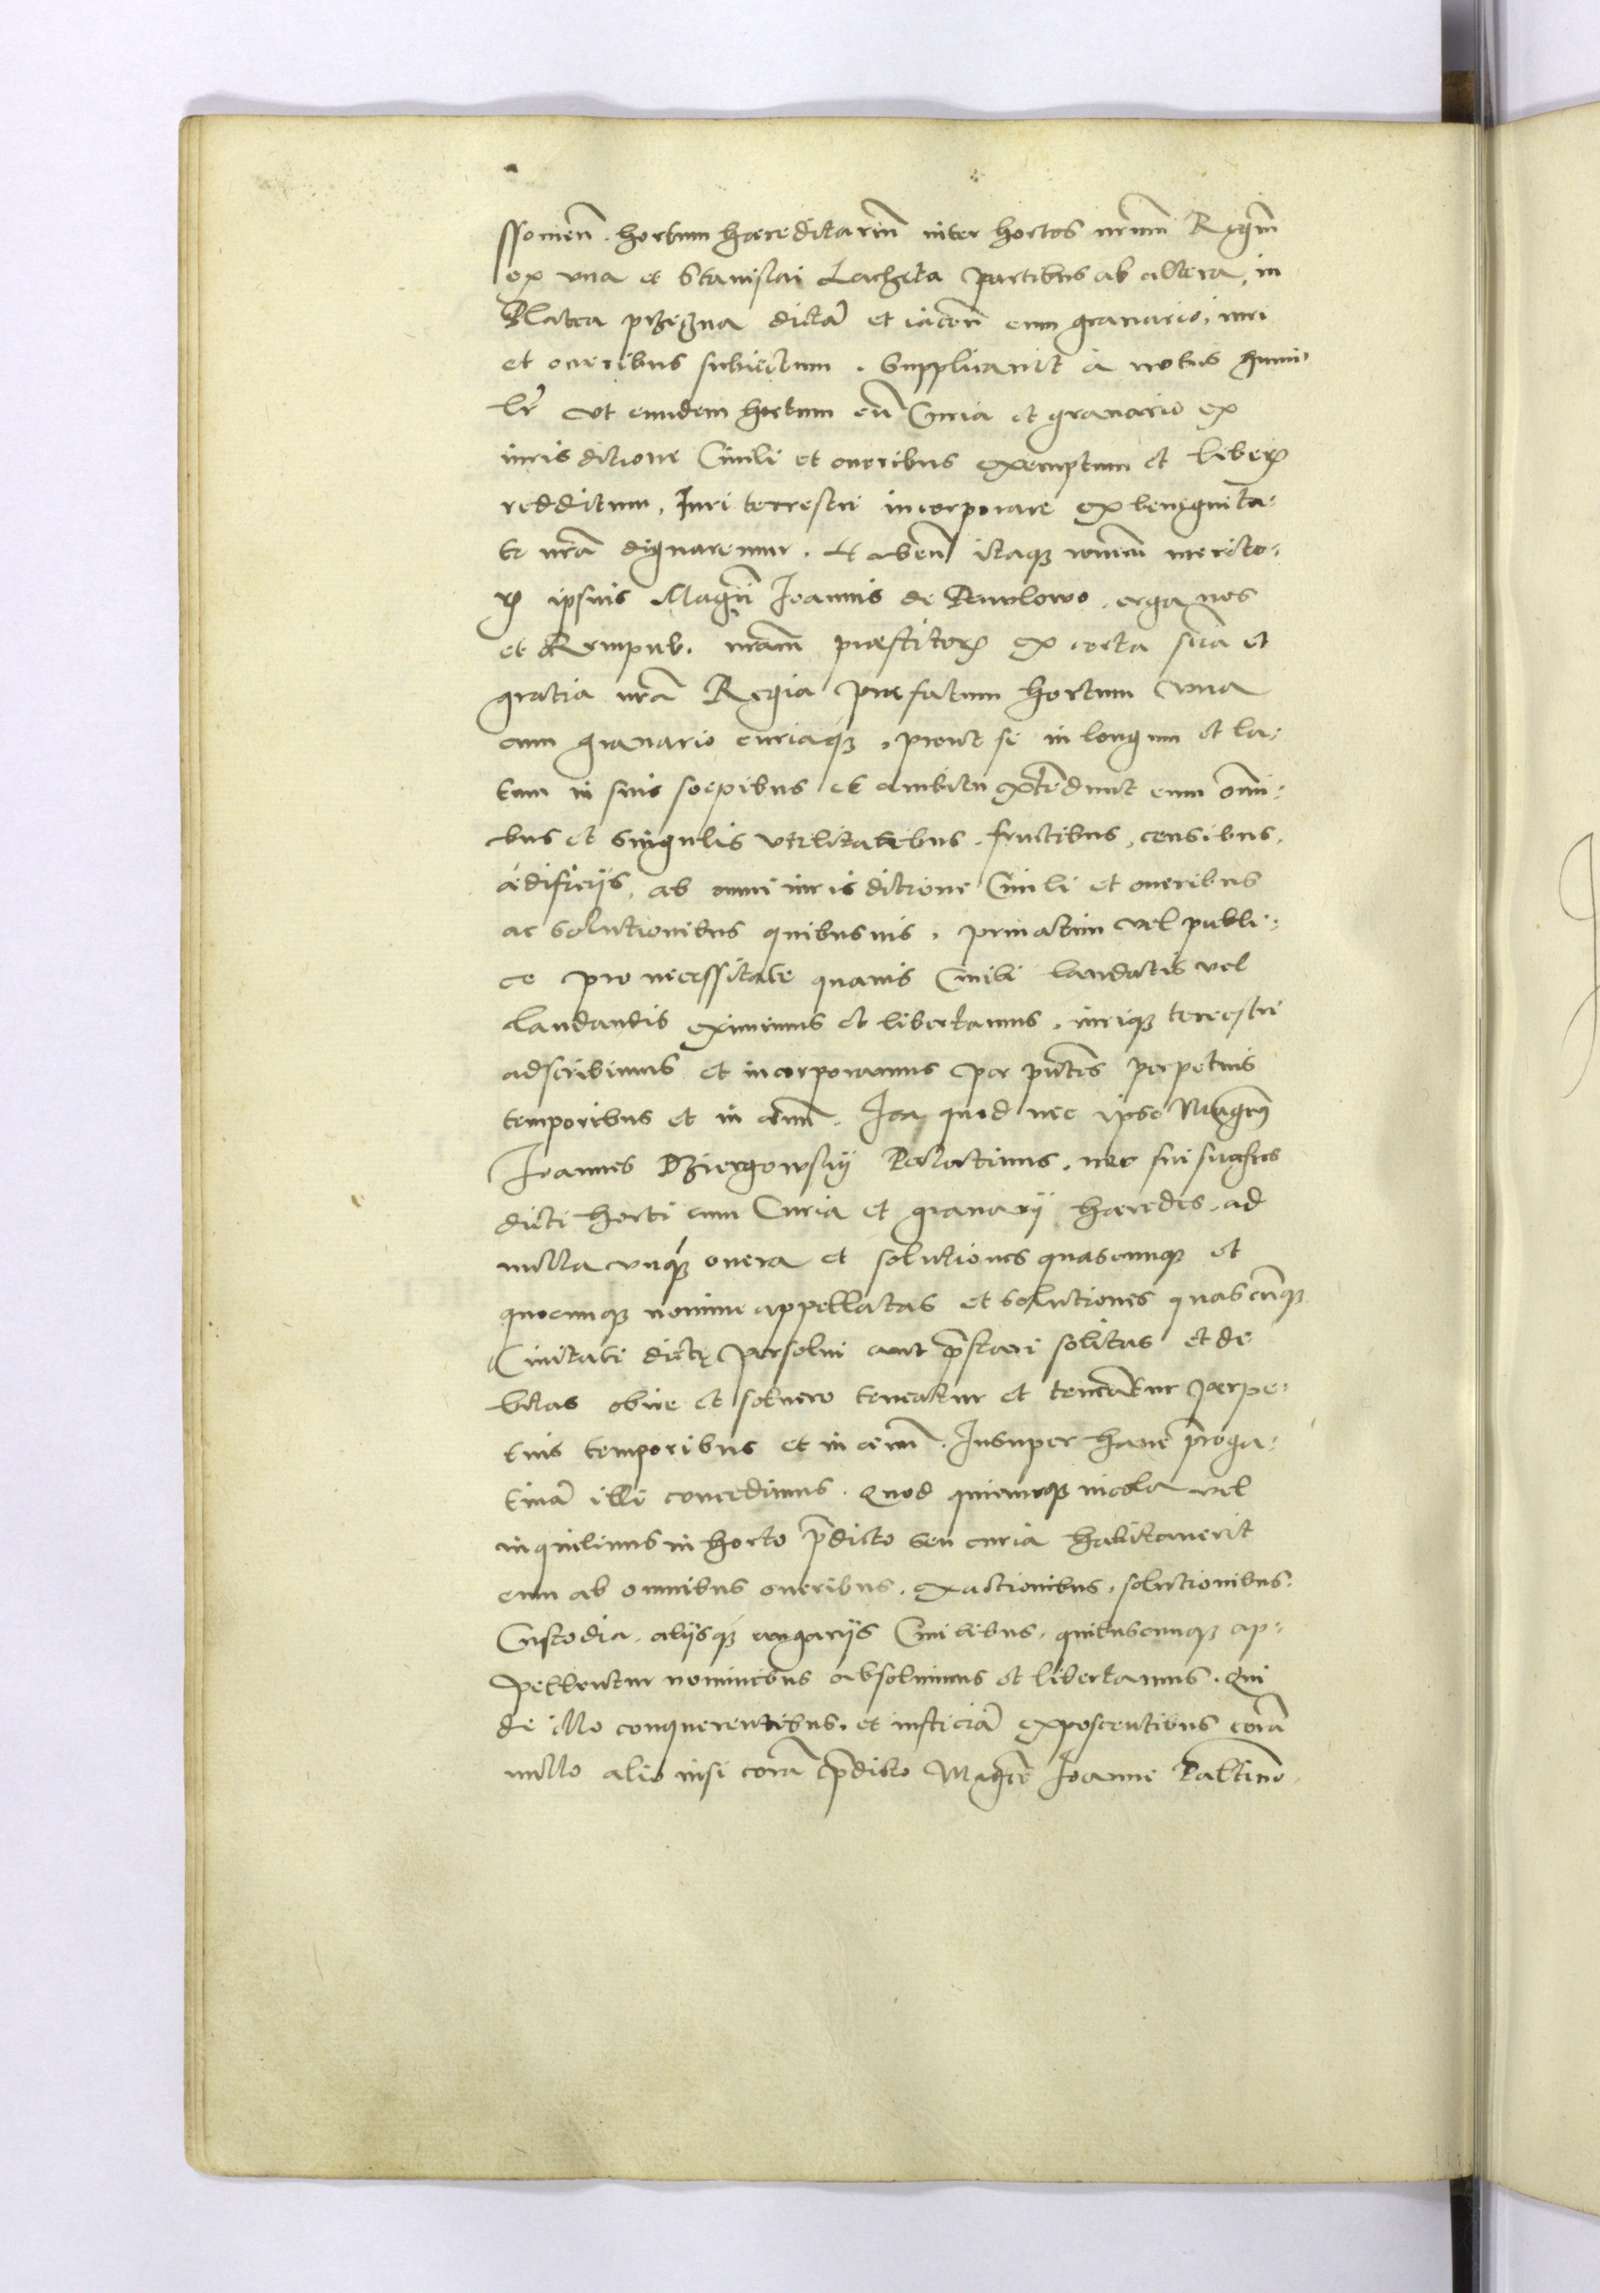 ssomeñ. hortum haereditariũ inter hortos nr̃um Regiũ
ex vna et Stanislai Lacheta partibus ab altera, in
Platea przeszna dictã et iaceñ cum granario, iuri
et oneribus subiectum. Supplicauit à nobis humi-
lr̃ vt eundem hortum cũ Curia et granario ex
iurisditione Ciuili et oneribus exemptum et liberũ
redditum, Iuri terrestri incorporare ex benignita-
te nr̃a dignaremur. Habeñ itaq rõnem merito-
rũ ipsius Magci Ioannis de Pawlowo erga nos
et Rempub. nr̃am praestitorũ ex certa sciã et
gratia nr̃a Regia praefatum hortum vna
cum granario curiaq, prout se in longum et la-
tum in suis saepibus et ambitu extẽdunt cum omi-
bus et singulis vtilitatibus, fructibus, censibus,
aedificijs, ab omni iurisditione Ciuili et oneribus
ac solutionibus quibusuis, priuatim vel publi-
ce pro necessitate quauis Ciuili laudatis vel
laudandis eximimus et libertamus, iuriq terrestri
adscribimus et incorporamus per pñtes perpetuis
temporibus et in aeuũ. Ita quod nec ipse Magcus
Ioannes Dziergowskij Palatinus, nec sui succẽs
dicti horti cum Curia et granarij haeredes, ad
nulla vnq̃ onera et solutiones quascunq et
quocunq nomine appellatas et solutiones quascũq
Ciuitati dictę persolui aut p̃stari solitas et de
bitas obire et soluere teneatur et teneãtur perpe-
tuis temporibus et in aeuũ. Insuper hanc p̃roga-
tiuã illi concedimus. Quod quicunq incola vel
inquilinus in horto p̃dicto seu curia habitauerit
eum ab omnibus oneribus, exactionibus, solutionibus,
Custodia, alijsq angarijs Ciuilibus, quibuscunq ap-
pellentur nominibus absoluimus et libertamus. Qui
de illo conquerentibus, et iusticiã exposcentibus corã
nullo alio nisi corã p̃dicto Magco Ioanne Paltino